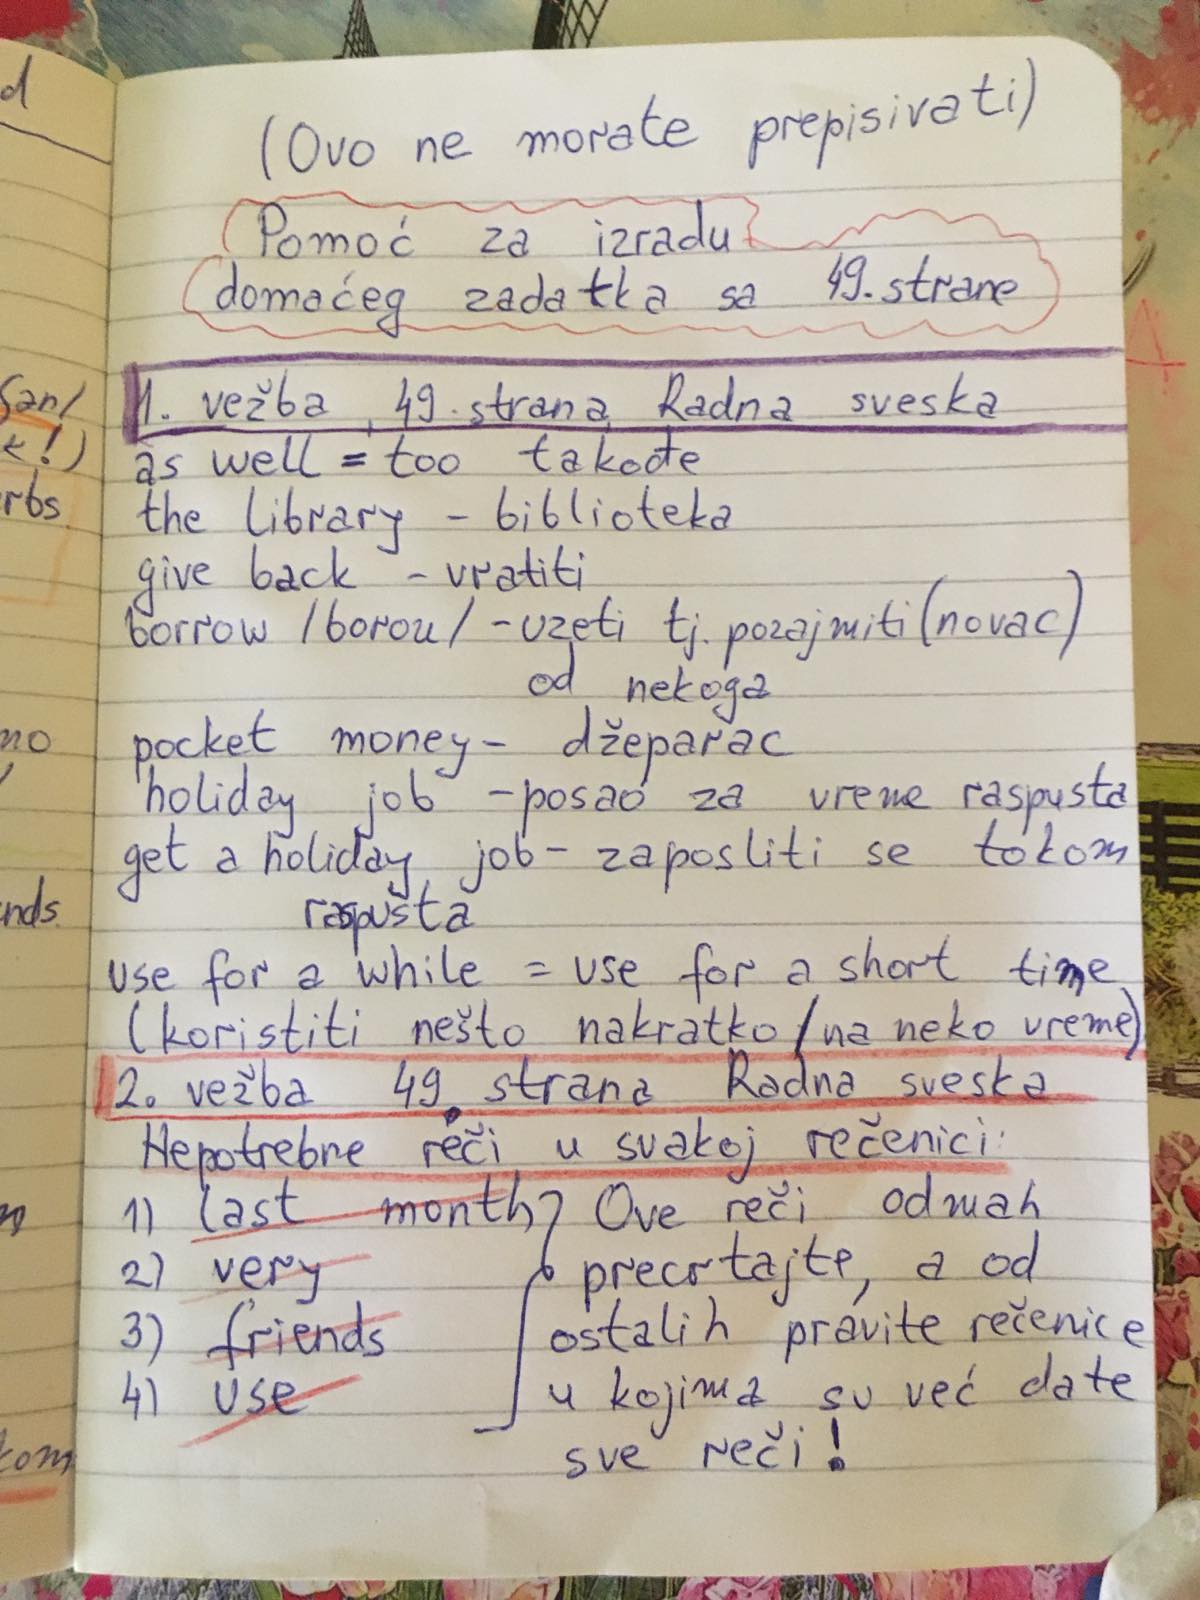 (Ovo ne morate prepisivati)
Pomoć za izradu
domaćeg zadatka sa 49. strane
1. vežba, 49. strana, Radna sveska
as well = too takođe
the library - biblioteka
give back - vratiti
borrow /borou/ - uzeti tj. pozajmiti (novac)
od nekoga
pocket money - džeparac
holiday job - posao za vreme raspusta
get a holiday job - zaposliti se tokom
raspusta
use for a while = use for a short time
(koristiti nešto nakratko / na neko vreme)
2. vežba 49. strana Radna sveska
Nepotrebne reči u svakoj rečenici:
1) last month Ove reči odmah
2) very precrtajte, a od
3) friends ostalih pravite rečenice
4) use u kojima su već date
sve reči!